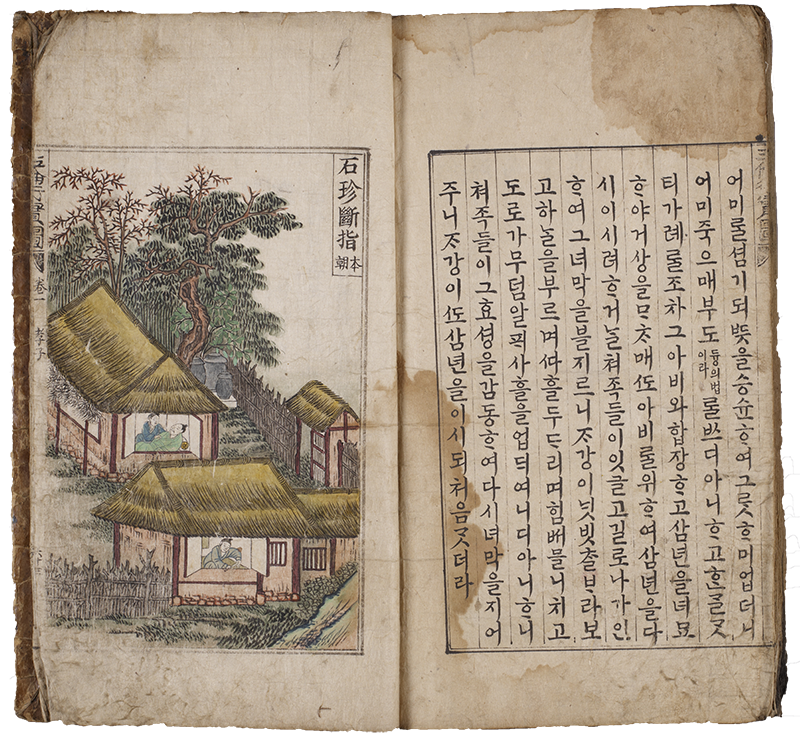 어미ᄅᆞᆯ셤기되ᄠᅳᆺ을승슌ᄒᆞ여그ᄅᆞᆺᄒᆞ미업더니
어미죽으매부도듕의법이라ᄅᆞᆯᄡᅳ디아니ᄒᆞ고ᄒᆞᆫᄀᆞᆯᄀᆞᆺ
티가례ᄅᆞᆯ조차그아비와합장ᄒᆞ고삼년을녀묘
ᄒᆞ야거상을ᄆᆞᄎᆞ매ᄯᅩ아비ᄅᆞᆯ위ᄒᆞ여삼년을다
시이시려ᄒᆞ거ᄂᆞᆯ쳐족들이잇글고길로나가인
ᄒᆞ여그녀막을블지르니ᄌᆞ강이ᄂᆡᆺ빗츨ᄇᆞ라보
고하ᄂᆞᆯ을부르며ᄯᅡ흘두드리며힘ᄡᅥ믈니치고
도로가무덤알ᄑᆡ사흘을업듸여니디아니ᄒᆞ니
쳐족들이그효셩을감동ᄒᆞ여다시녀막을지어
주니ᄌᆞ강이ᄯᅩ삼년을이시되처음ᄀᆞᆺ더라
石珍斷指
本朝
五倫行實圖 卷一 孝子